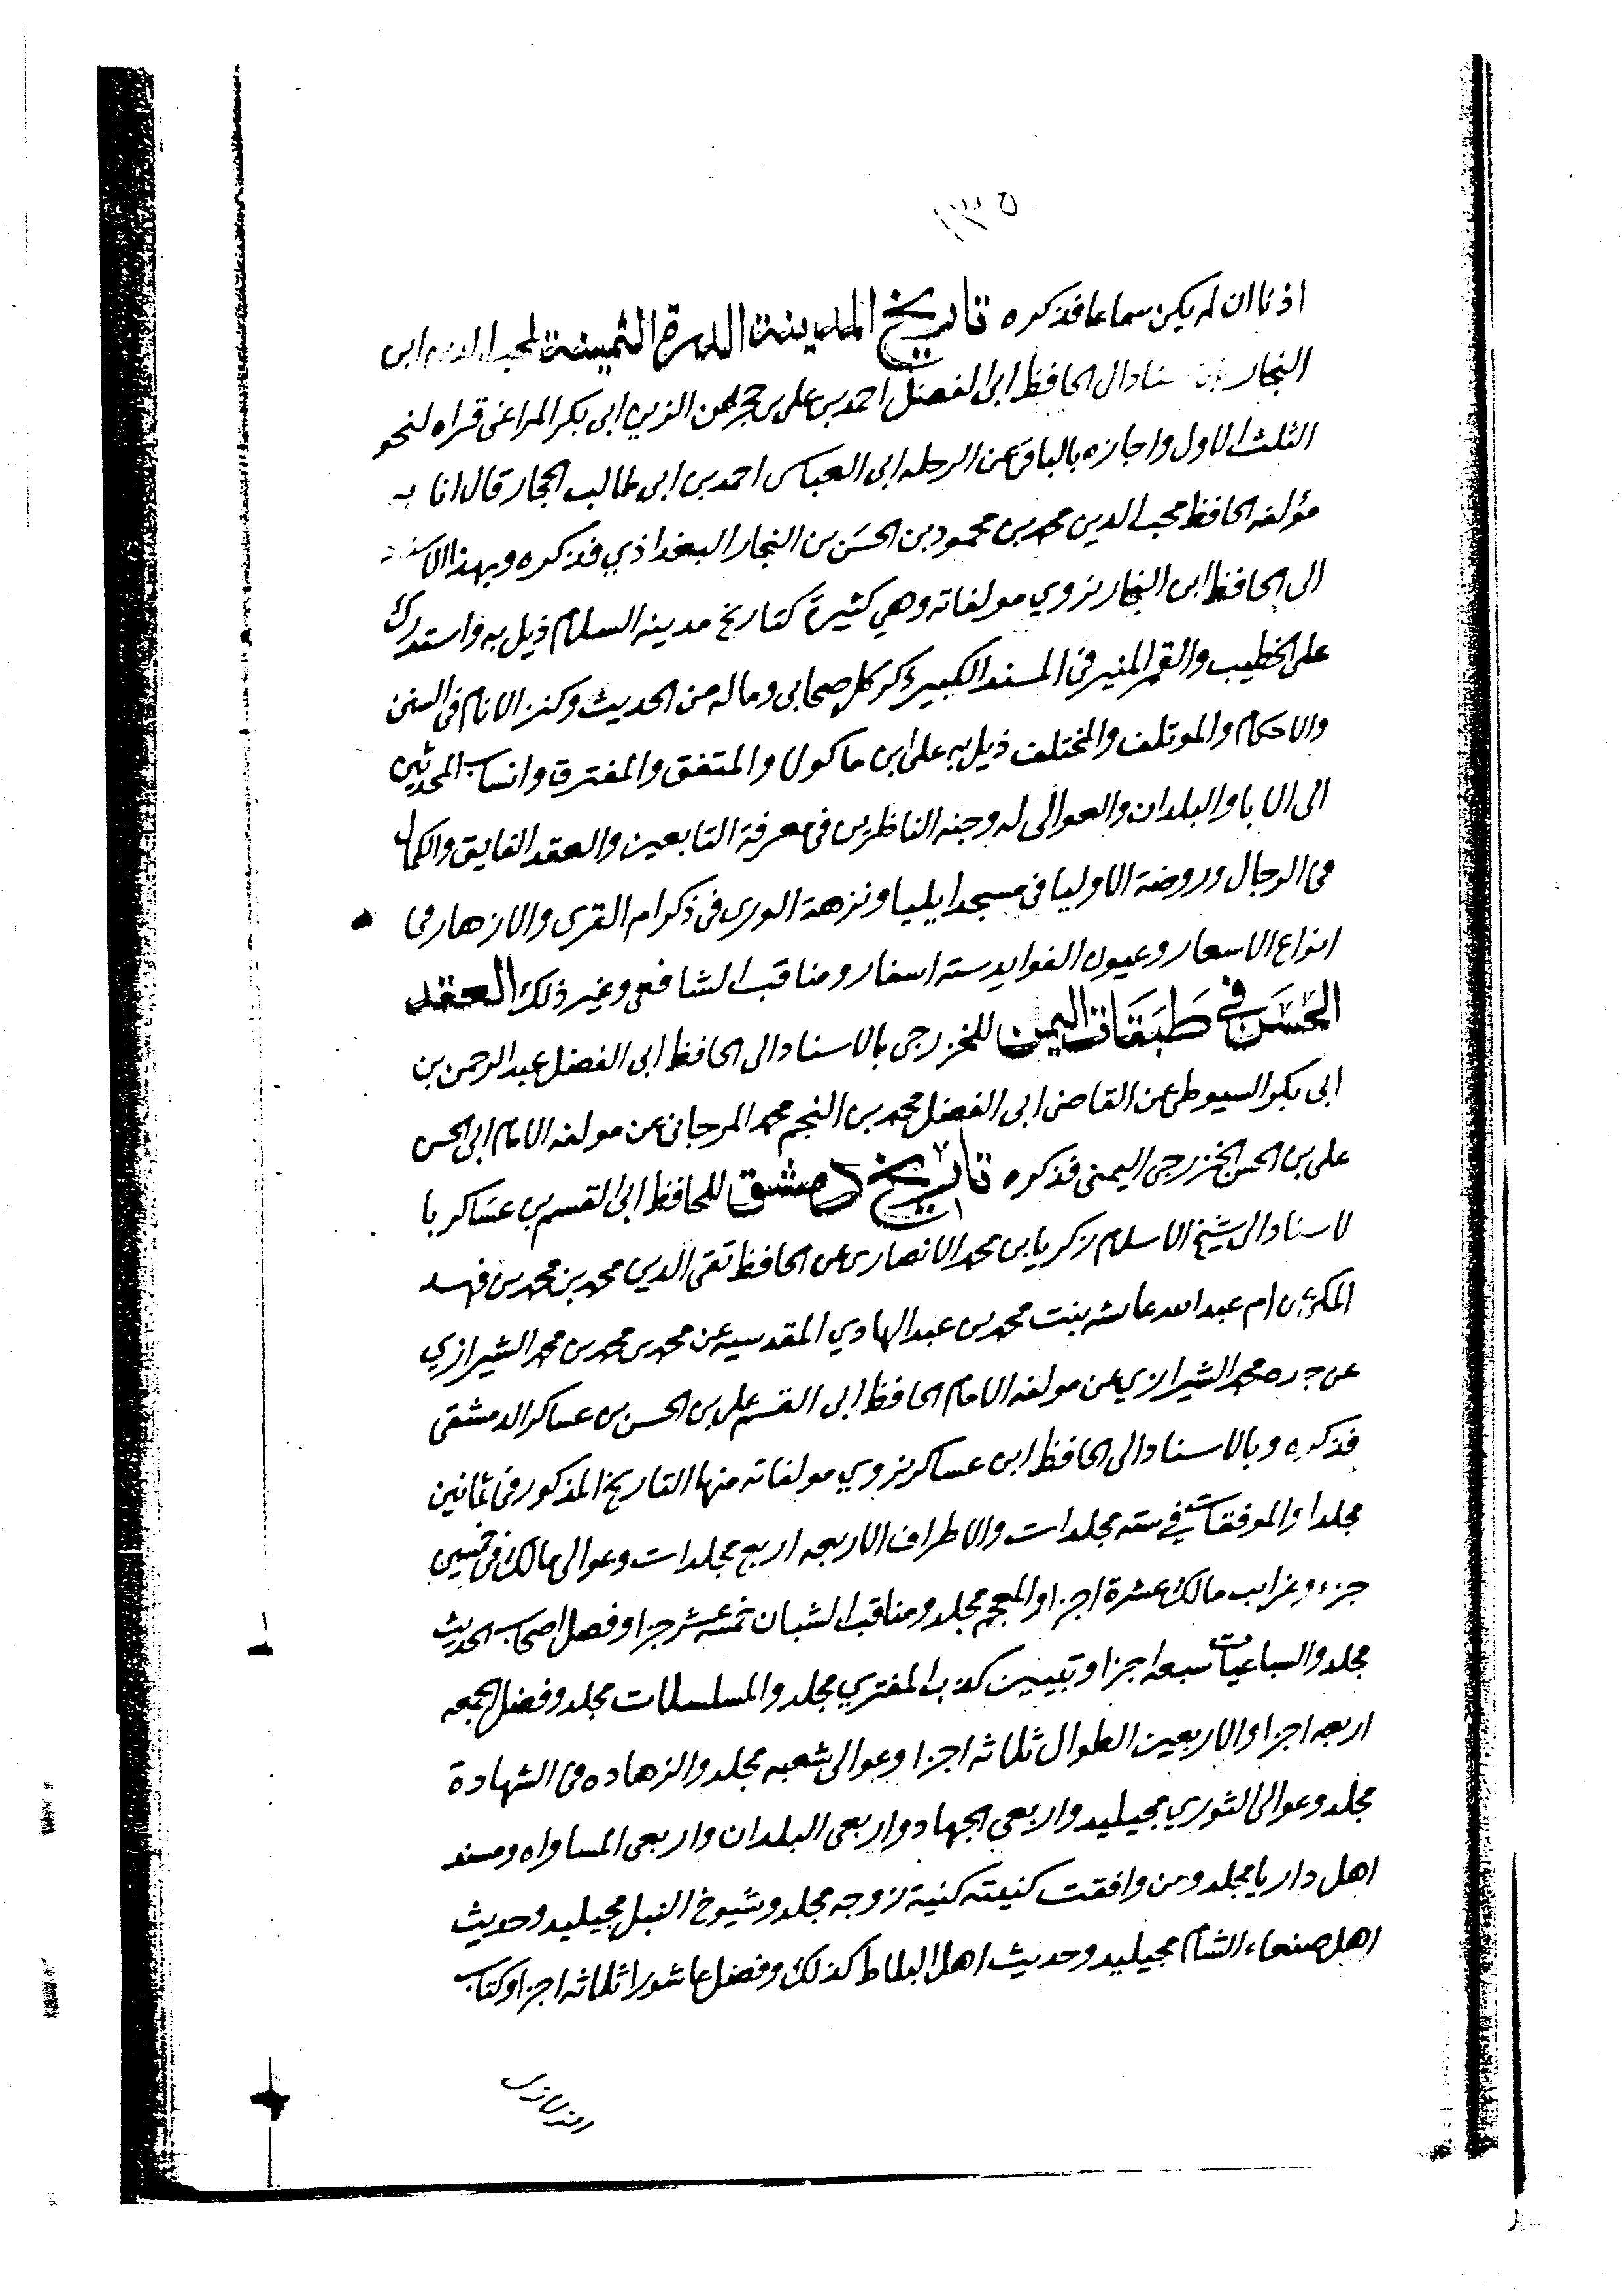 ١٣٥
اذنا ان لم يكن سماعا فذكره تاريخ المدينة الدرة الثمينة لمحب الدين ابن
النجار الى الحافظ ابى الفضل احمد بن على بن حجر عن الزين ابى بكر المراغى قراه لنحو
الثلث الاول واجازه بالباقى عن الرحله ابى العباس احمد بن ابى طالب الحجار قال انا به
مؤلفه الحافظ محب الدين محمد بن محمود بن الحسن بن النجار البغداذي فذكره وبهذا الاسناد
الى الحافظ ابن النجار نروي مولفاته وهي كثيرة كتاريخ مدينه السلام ذيل به واستدرك
على الخطيب والقمر المنير فى المسند الكبير ذكر كل صحابى وماله من الحديث وكنز الانام فى السنن
والاحكام والموتلف والمختلف ذيل به على ابن ماكولا والمتفق والمفترق وانساب المحدثين
الى الابا والبلدان والعوالى له وجنه الناظرين فى معرفة التابعين والعقد الفايق والكمال
فى الرجال وروضة الاوليا فى مسجد ايليا ونزهة الورى فى ذكر ام القرى والازهار فى
انواع الاسعار وعيون الفوايد سته اسفار ومناقب الشافعى وغير ذلك العقد
الحسن في طبقات اليمن للخزرجى بالاسناد الى الحافظ ابى الفضل عبد الرحمن بن
ابى بكر السيوطى عن القاضى ابى الفضل محمد بن النجم محمد المرجانى عن مولفه الامام ابى الحسن
على بن الحسن الخزرجى اليمنى فذكره تاريخ دمشق للحافظ ابى القسم بن عساكر با
لاسناد الى شيخ الاسلام زكريا بن محمد الانصارى عن الحافظ تقى الدين محمد بن محمد بن فهد
المكى عن ام عبد الله عائشه بنت محمد بن عبد الهادي المقدسيه عن محمد بن محمد بن محمد الشيرازي
عن جده محمد الشيرازي عن مولفه الامام الحافظ ابى القسم على بن الحسن بن عساكر الدمشقى
فذكره وبالاسناد الى الحافظ ابن عساكر نروي مولفاته منها التاريخ المذكور فى ثمانين
مجلدا والموفقات في سته مجلدات والاطراف الاربعه اربع مجلدات وعوالى مالك فى خمسين
جزء وغرايب مالك عشرة اجزا والمعجم مجلد ومناقب الشبان خمسه عشر جزا وفصل اصحاب الحديث
مجلد والسباعيات سبعه اجزا وتبيين كذب المفتري مجلد والمسلسلات مجلد وفضل الجمعه
اربعه اجزا والاربعين الطوال ثلاثه اجزا وعوالى شعبه مجلد والزهاده فى الشهادة
مجلد وعوالى الثوري مجيليد واربعى الجهاد واربعى البلدان واربعى المساواه ومسند
اهل داريا مجلد ومن وافقت كنيته كنية زوجه مجلد وشيوخ النبل مجيليد وحديث
اهل صنعاء الشام مجيليد وحديث اهل البلاط كذلك وفضل عاشورا ثلاثه اجزا وكتاب